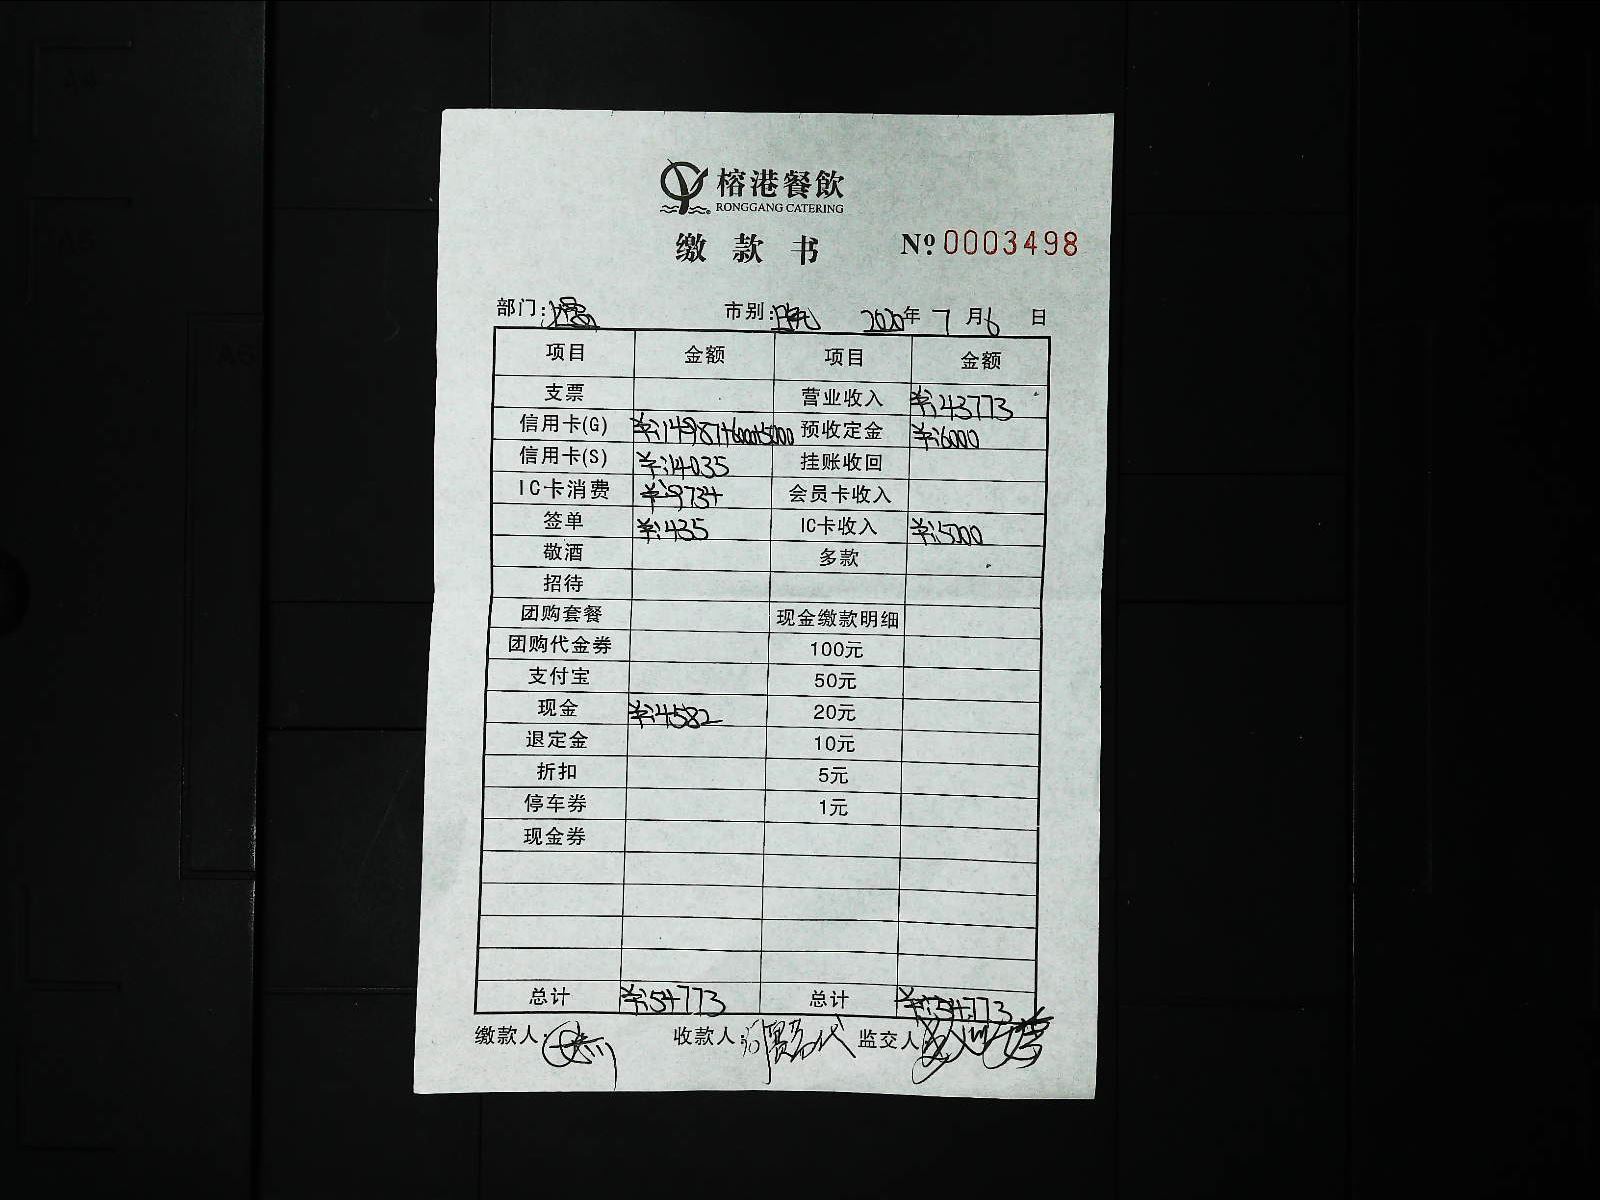 榕港餐飲
RONGGANG CATERING
缴款书 № 0003498
部门: 市别: 2020年7月6日
项目 金额 项目 金额
支票 营业收入 ¥:43773
信用卡(G) ¥:14987+6000+5000 预收定金 ¥:6000
信用卡(S) ¥:14035 挂账收回
IC卡消费 ¥:9734 会员卡收入
签单 ¥:435 IC卡收入 ¥:5000
敬酒 多款
招待
团购套餐 现金缴款明细
团购代金券 100元
支付宝 50元
现金 ¥:4582 20元
退定金 10元
折扣 5元
停车券 1元
现金券
总计 ¥:54773 总计 ¥:54773
缴款人: 收款人: 监交人